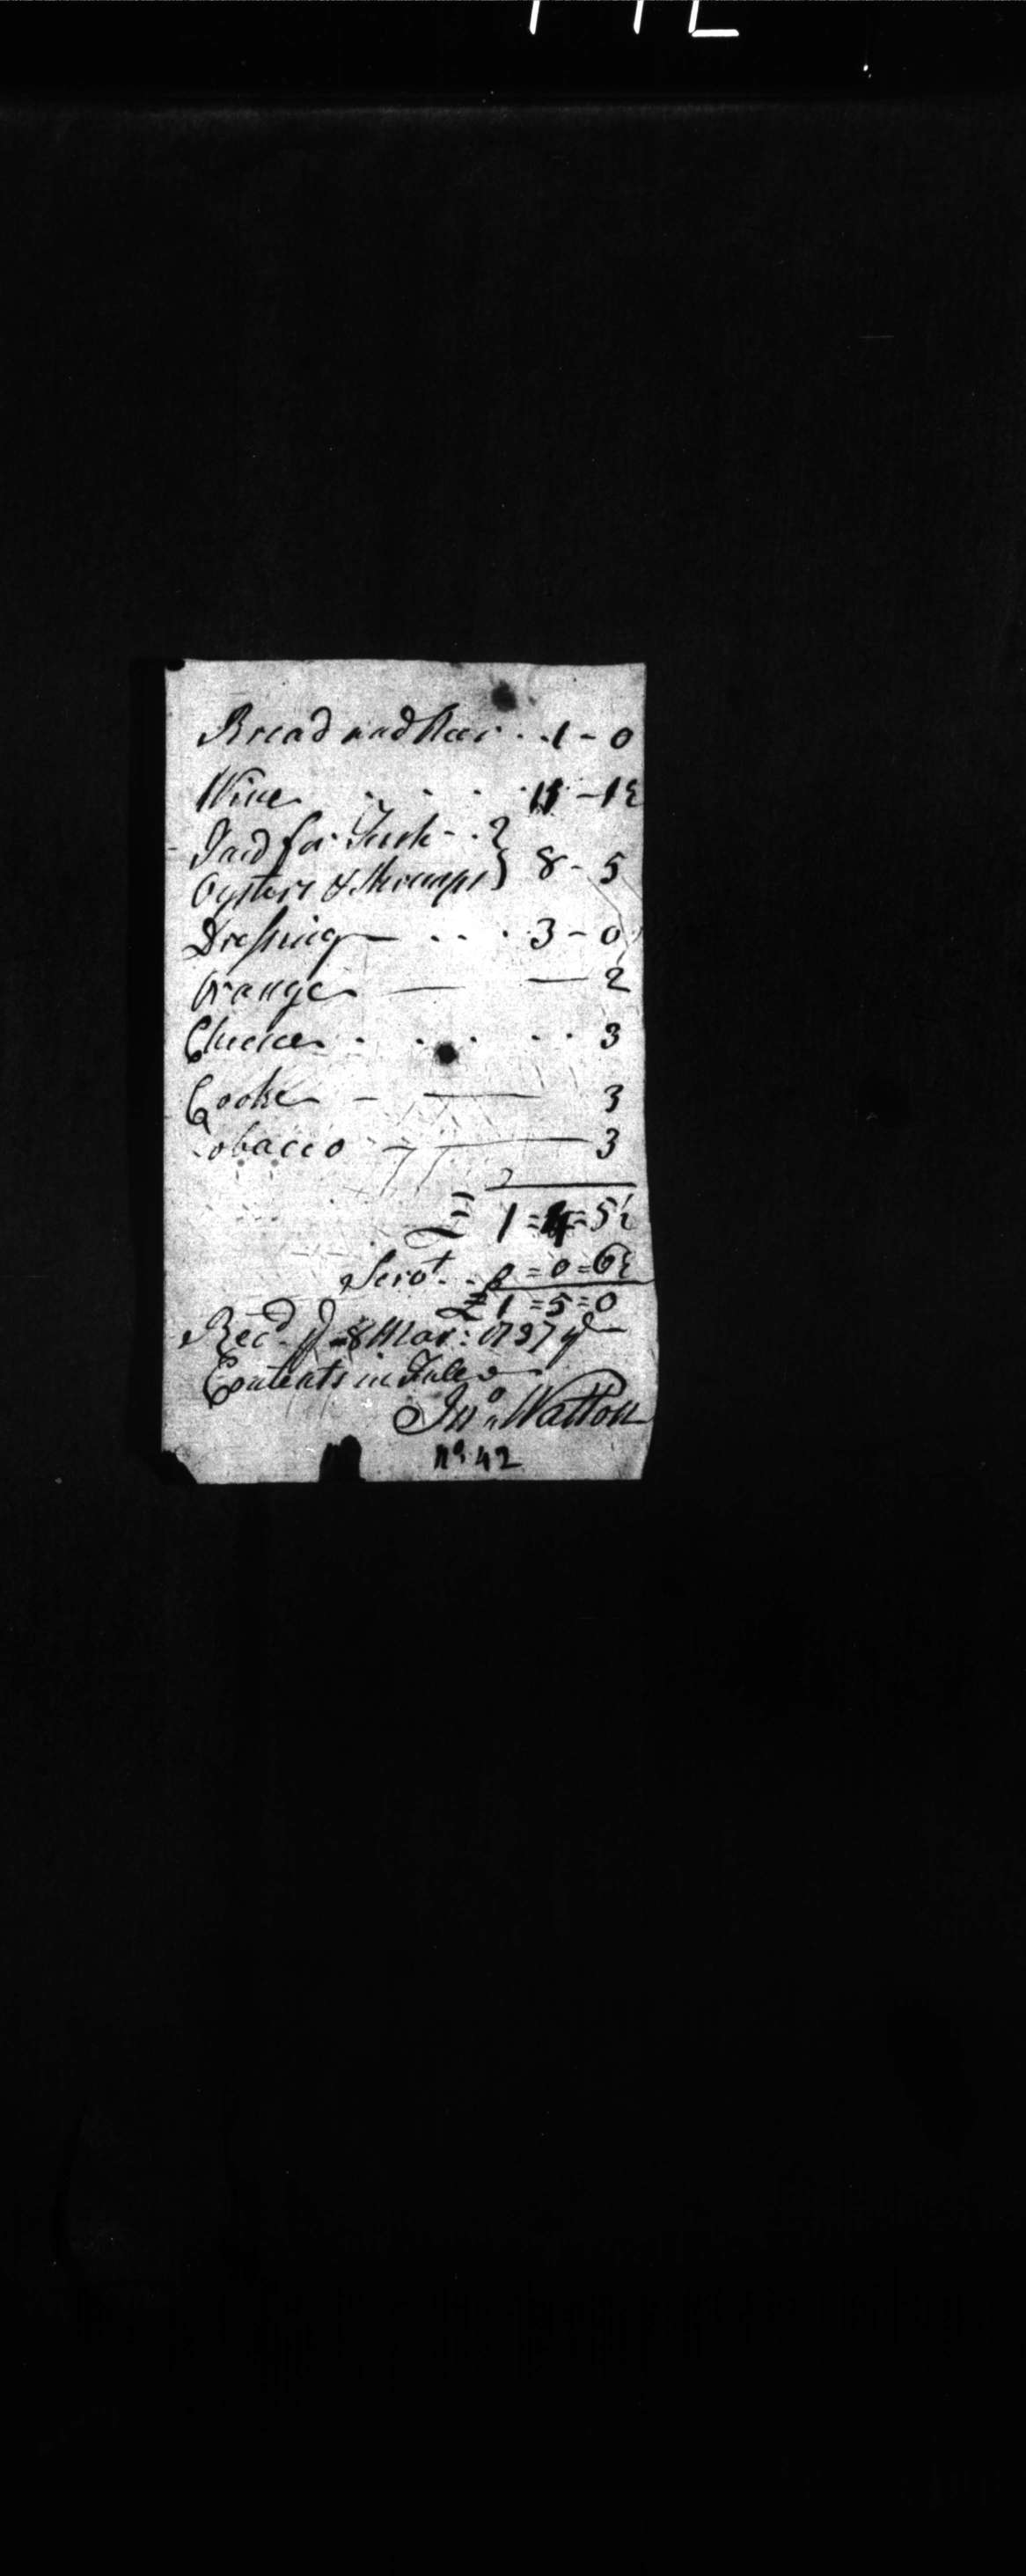 Bread and Beer . . 1 - 0
Wine . . . . 11 - 1½
Paid for
Oysters & Shrimps } 8 - 5
Dressing — . . . 3 - 0
Orange — — 2
Cheese . . . . . 3
Cooke — — 3
Tobacco — — 3
£ 1 = 4 = 5½
Serv.t . . 0 = 0 = 6½
£ 1 = 5 = 0
Rec.d 8 Mar: 1737 ye
Contents in Full
Jno. Watton
No. 42